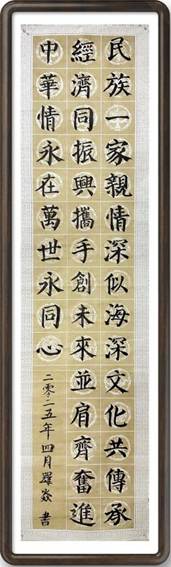 民族一家親情深似海深文化共傳承
經濟同振興攜手創未來並肩齊奮進
中華情永在萬世永同心
二零二五年四月羅焱書